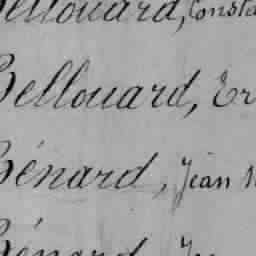 Bellouard, Consta
Bellouard, Er
Bénard, Jean
Bénard, Je